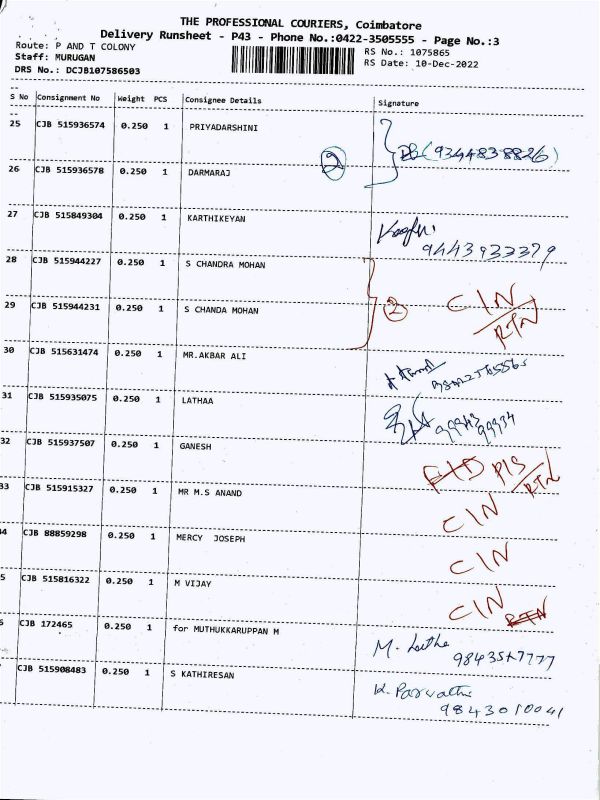 THE PROFESSIONAL COURIERS, Coimbatore
Delivery Runsheet - P43 - Phone No.:0422-3505555 - Page No.:3
Route: P AND T COLONY RS No.: 1075865
Staff: MURUGAN RS Date: 10-Dec-2022
DRS No.: DCJB107586503
S No Consignment No Weight PCS Consignee Details Signature
25 CJB 515936574 0.250 1 PRIYADARSHINI
2 (9344838826)
26 CJB 515936578 0.250 1 DARMARAJ
27 CJB 515849304 0.250 1 KARTHIKEYAN
9443933379
28 CJB 515944227 0.250 1 S CHANDRA MOHAN
2 CIN
RTN
29 CJB 515944231 0.250 1 S CHANDA MOHAN
30 CJB 515631474 0.250 1 MR.AKBAR ALI
31 CJB 515935075 0.250 1 LATHAA
99943
99934
32 CJB 515937507 0.250 1 GANESH
RTN
33 CJB 515915327 0.250 1 MR M.S ANAND
CIN
4 CJB 88859298 0.250 1 MERCY JOSEPH
CIN
5 CJB 515816322 0.250 1 M VIJAY
CIN RTN
6 CJB 172465 0.250 1 for MUTHUKKARUPPAN M
M. Latha
CJB 515908483 0.250 1 S KATHIRESAN
K. Parvathi
9843010041